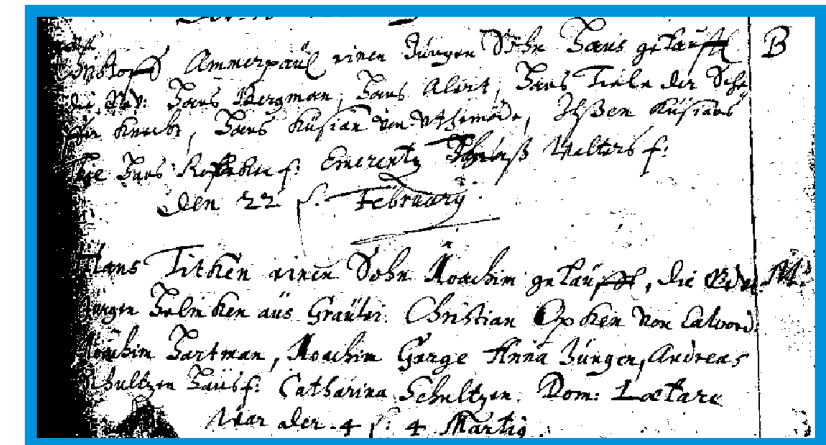 Christoff Ammerpaul einen Jungen Sohn Hans getaufft B
die Gev: Hans Bergman, Hans Alert, Hans Tiele der
Knecht, Hans Kusian von Uthmöde, Kusians
Hans f: Emerentz Walters f:
den 22 f. February.
Hans Titken einen Sohn Joachim getaufft, die Gev. M.
Jürgen Helmken aus Grauter. Christian Opken von Calvord.
Joachim Hartman, Joachim Garge Anna Jungen, Andreas
Schultzen Hausf: Catharina Schultzen. Dom: Lætare
War der 4 f: 4 Martij.